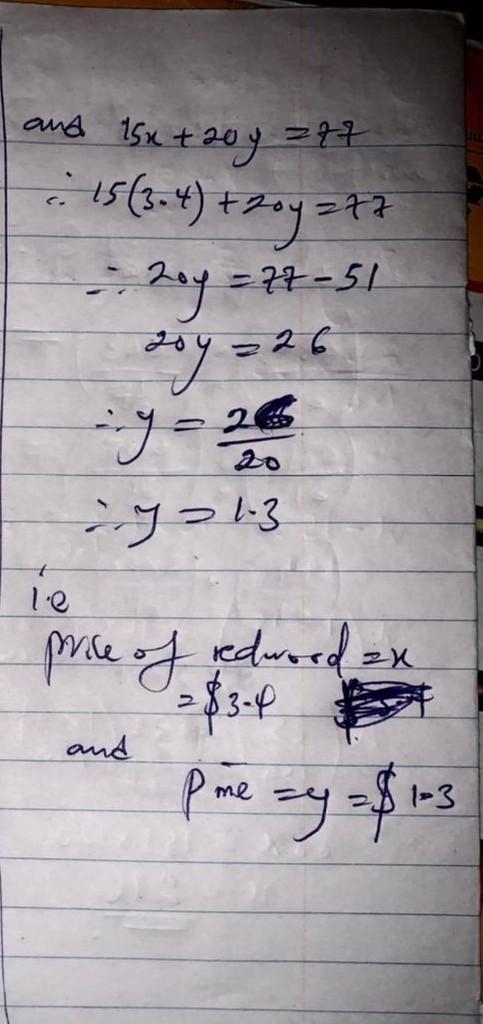 and 15x + 20y = 77
∴ 15(3.4) + 20y = 77
∴ 20y = 77 - 51
20y = 26
∴ y = 26/20
∴ y = 1.3
i.e
price of redwood = x
= $3.4
and
Pine = y = $1.3